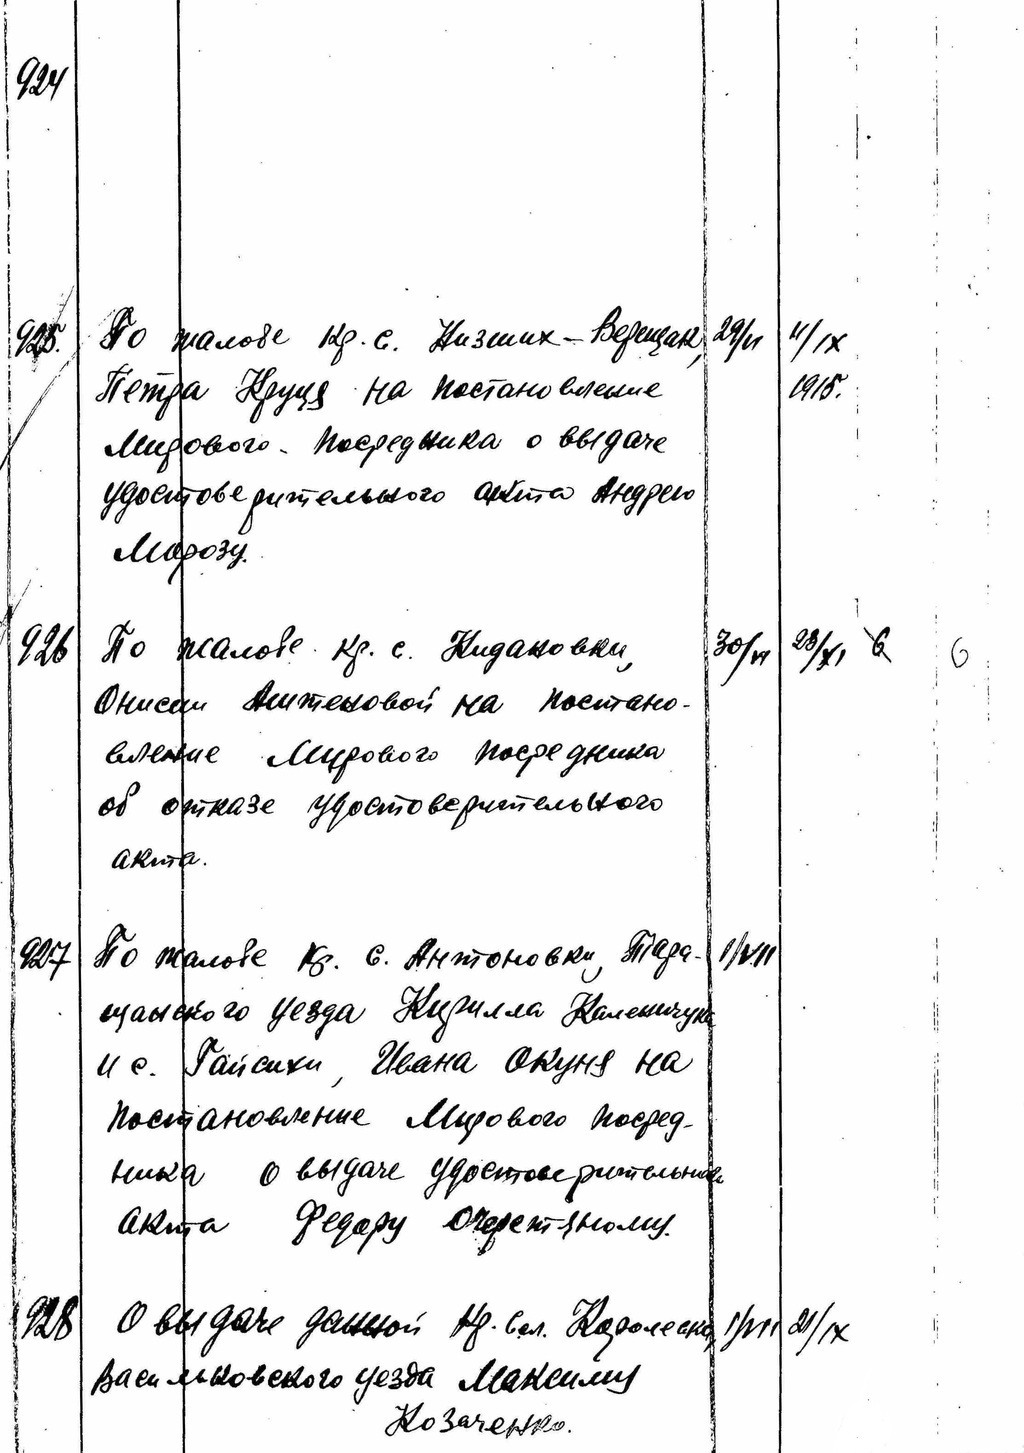 924
925. По жалобе кр. с. Низших-Верещак, 29/VI 11/IX
Петра Круця на постановление 1915.
Мирового Посредника о выдаче
удостоверительного акта Андрею
Морозу.
926 По жалобе кр. с. Кидановки, 30/VI 28/XI 6 6
Онисии Антеновой на постано-
вление Мирового Посредника
об отказе удостоверительного
акта.
927 По жалобе кр. с. Антоновки, Тара- 1/VII
щанского уезда Кирилла Каленичука
и с. Гайсихи, Ивана Окуня на
постановление Мирового Посред-
ника о выдаче удостоверительного
акта Федору Очеретяному.
928 О выдаче данной кр. сел. 1/VII 21/IX
Васильковского уезда Максиму
Козаченко.